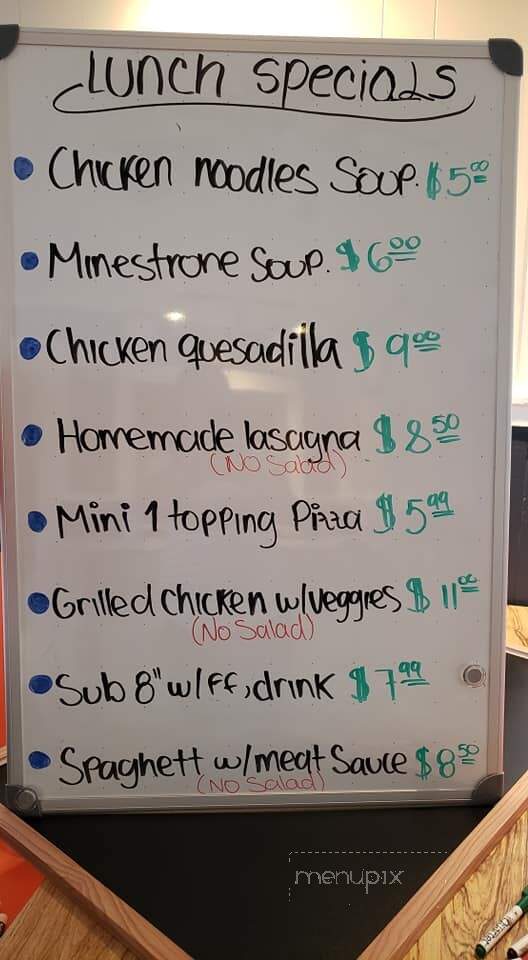 Lunch Specials
Chicken noodles Soup. $5.00
Minestrone Soup. $6.00
Chicken quesadilla $9.00
Homemade lasagna $8.50
(No Salad)
Mini 1 topping Pizza $5.99
Grilled Chicken w/veggies $11.00
(No Salad)
Sub 8" w/ff, drink $7.99
Spaghett w/meat Sauce $8.50
(No Salad)
menupix